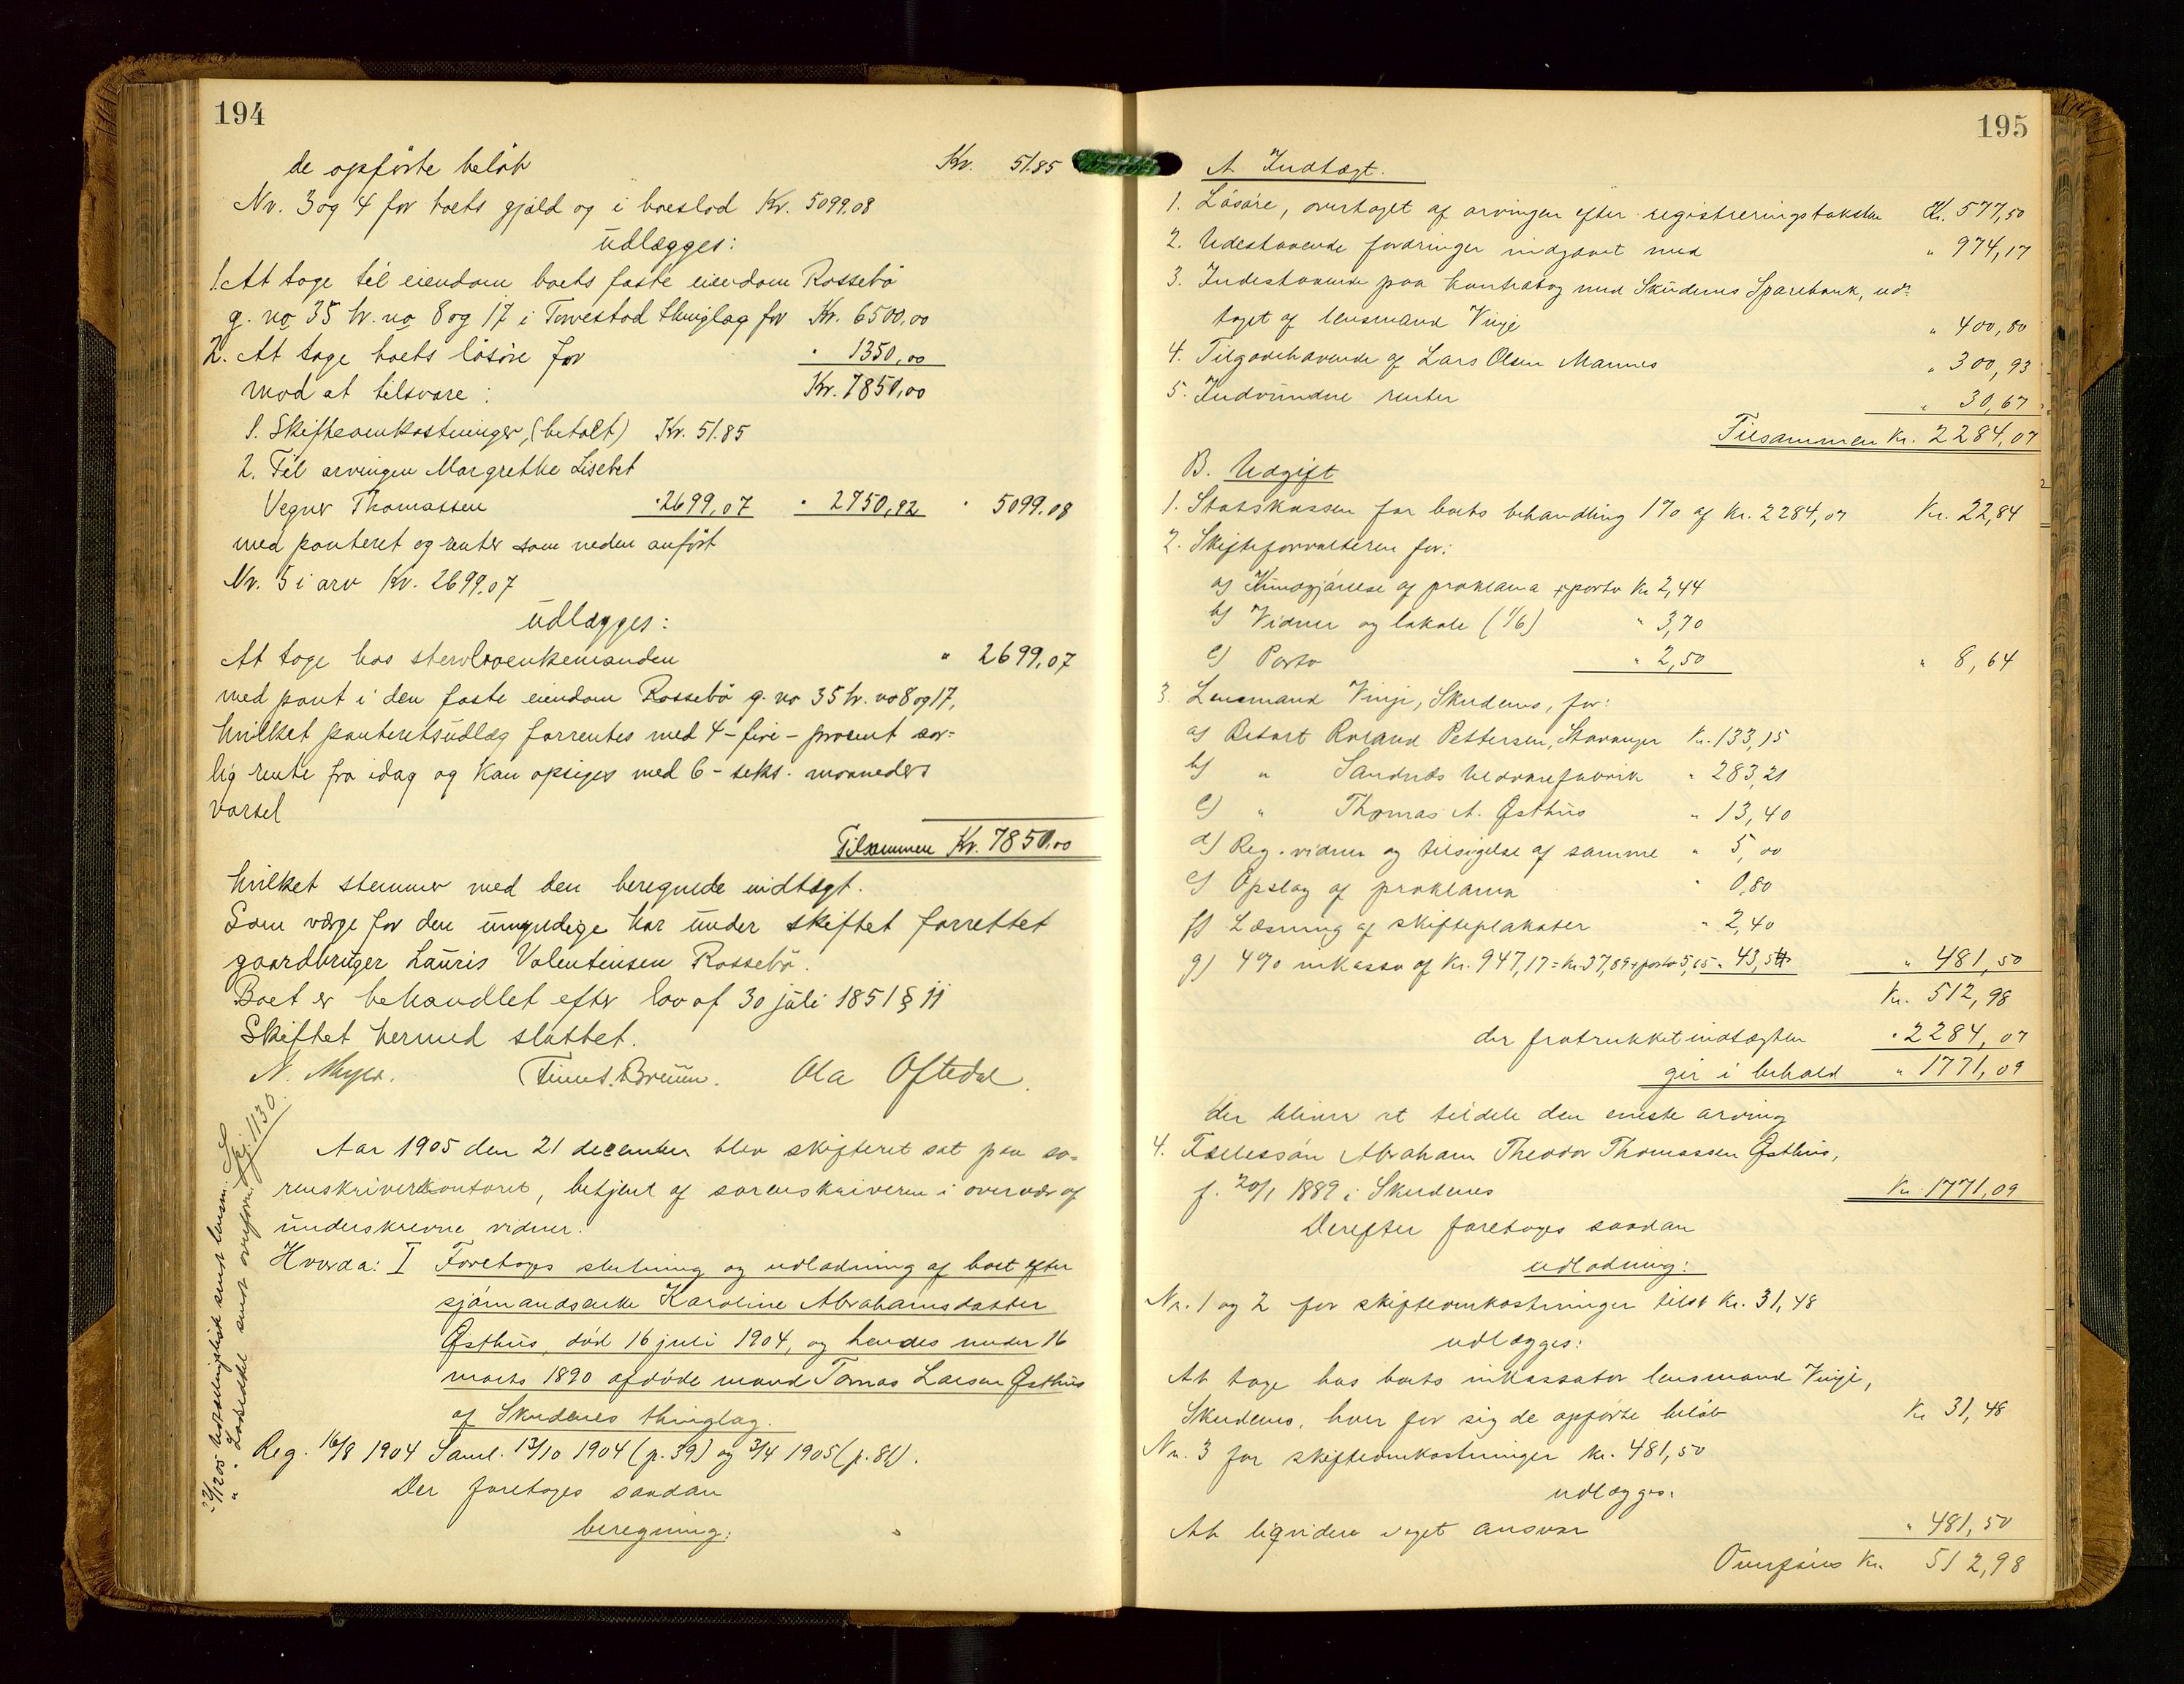 194
de opførte beløb Kr. 51.85
Nr. 3 og 4 for boets gjæld og i boeslod Kr. 5099.08
udlægges:
1. At tage til eiendom boets faste eiendom Rossebø
g. no 35 br. no 8 og 17 i Torvestad thinglag for Kr. 6500,00
2. At tage boets løsøre for " 1350,00
mod at tilsvare: Kr. 7850,00
1. Skifteomkostninger, (betalt) Kr. 51.85
2. Til arvingen Margrethe Lisebet
Vegner Thomassen " 2699,07 " 2750,92 " 5099.08
med panteret og renter som neden anført
Nr. 5 i arv Kr. 2699.07
udlægges:
At tage hos stervboenkemanden " 2699,07
med pant i den faste eiendom Rossebø g. no 35 br. no 8 og 17,
hvilket panteretsudlæg forrentes med 4 - fire - procent aar=
lig rente fra idag og kan opsiges med 6 - seks - maaneders
varsel
Tilsammen Kr. 7850.00
hvilket stemmer med den beregnede indtægt.
Som værge for den umyndige har under skiftet forrettet
gaardbruger Lauris Valentinsen Rossebø.
Boet er behandlet efter lov af 30 juli 1851 § 11
Skiftet hermed sluttet.
N. Meyer. Finn S. Bruun. Ola Oftedal.
Aar 1905 den 21 december blev skifteret sat paa so=
renskriverkontoret, betjent af sorenskriveren i overvær af
underskrevne vidner.
Hvorda: I Foretoges slutning og udlodning af boet efter
sjømandsenke Karoline Abrahamsdatter
Østhus, død 16 juli 1904, og hendes under 16
marts 1890 afdøde mand Tomas Larsen Østhus
af Skudenes thinglag.
Reg. 16/8 1904 Saml. 13/10 1904 (p. 39) og 3/4 1905 (p. 81).
Der foretoges saadan
beregning:
195
A Indtægt.
1. Løsøre, overtaget af arvingen efter registreringstaksten Kr. 577,50
2. Udestaaende fordringer indgaaet med " 974,17
3. Indestaaende paa kontrabog med Skudenes Sparebank, ud=
taget af lensmand Vinje " 400,80
4. Tilgodehavende af Lars Olsen Mannes " 300,93
5. Indvundne renter " 30,67
Tilsammen Kr. 2284,07
B. Udgift
1. Statskassen for boets behandling 1% af Kr. 2284,07 Kr. 22,84
2. Skifteforvalteren for:
a) Kundgjørelse af proklama + porto Kr 2,44
b) Vidner og lokale (1/6) " 3,70
c) Porto " 2,50 " 8,64
3. Lensmand Vinje, Skudenes, for:
a) Betalt Roland Pettersen, Stavanger Kr. 133,15
b) " Sandnes Uldvarefabrik " 283,21
c) " Thomas A. Østhus " 13,40
d) Reg. vidner og tilsigelse af samme " 5,00
e) Opslag af proklama " 0,80
f) Læsning af skifteplakater " 2,40
g) 4% inkasso af Kr. 947,17 = Kr. 37,89 + porto 5,65 = 43,54 " 481,50
Kr. 512,98
der fratrukket indtægten " 2284,07
gir i behold " 1771,09
der bliver at tildele den eneste arving
4. Fællessøn Abraham Theodor Thomassen Østhus,
f. 20/1 1889 i Skudenes Kr. 1771,09
Derefter foretoges saadan
udlodning:
Nr. 1 og 2 for skifteomkostninger tilst Kr. 31,48
udlægges:
At tage hos boets inkassator lensmand Vinje,
Skudenes, hver for sig de opførte beløb Kr 31,48
Nr. 3 for skifteomkostninger kr. 481,50
udlægges:
At liqvidere eget ansvar " 481,50
Overføres Kr. 512,98